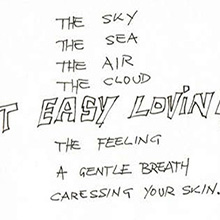 THE SKY
THE SEA
THE AIR
THE CLOUD
T EASY LOVIN
THE FEELING
A GENTLE BREATH
CARESSING YOUR SKIN.